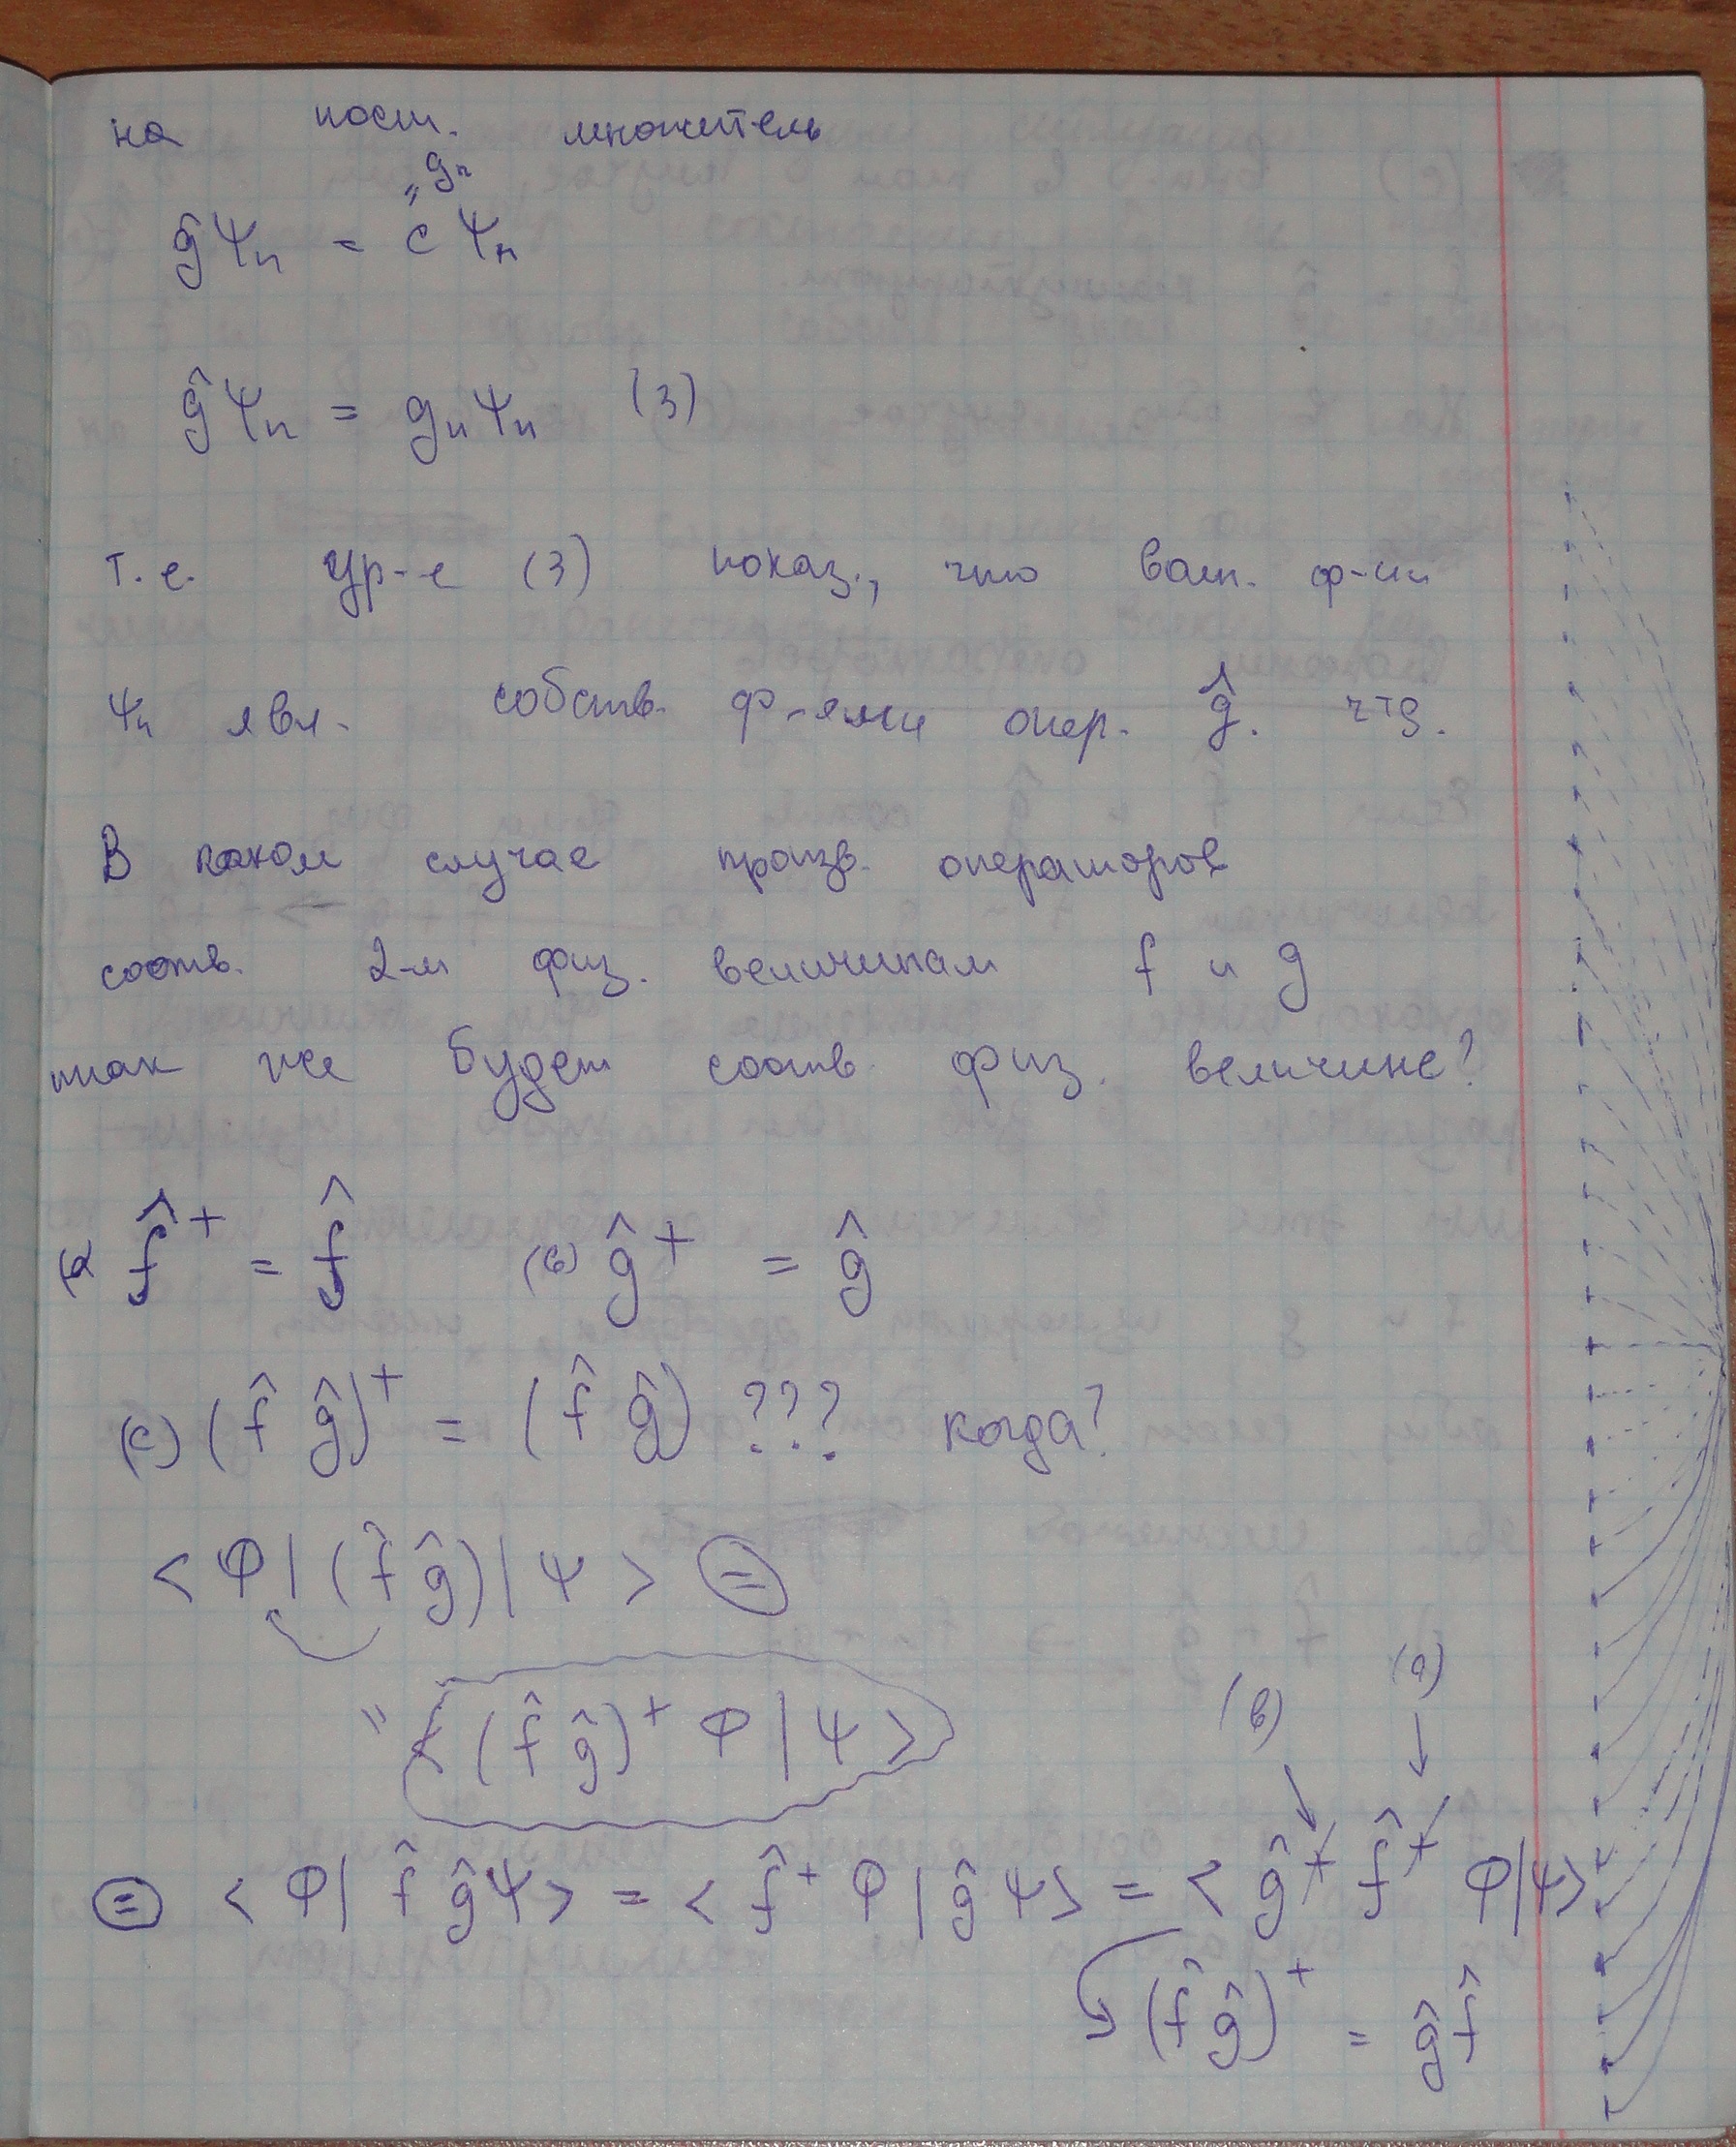 на пост. множитель
" gₙ
ĝΨₙ = c Ψₙ
ĝΨₙ = gₙΨₙ (3)
т.е. ур-е (3) показ., что волн. ф-ии
Ψₙ явл. собств. ф-ями опер. ĝ. чтд.
В каком случае произв. операторов
соотв. 2-м физ. величинам f и g
так же будет соотв. физ. величине?
(a) f̂⁺ = f̂ (в) ĝ⁺ = ĝ
(с) (f̂ ĝ)⁺ = (f̂ ĝ) ??? когда?
< Φ | (f̂ ĝ) | Ψ > ⊜
" < (f̂ ĝ)⁺ Φ | Ψ >
(в) (a)
⊜ < Φ | f̂ ĝΨ > = < f̂⁺ Φ | ĝ Ψ > = < ĝ⁺ f̂⁺ Φ | Ψ >
(f̂ ĝ)⁺ = ĝ f̂